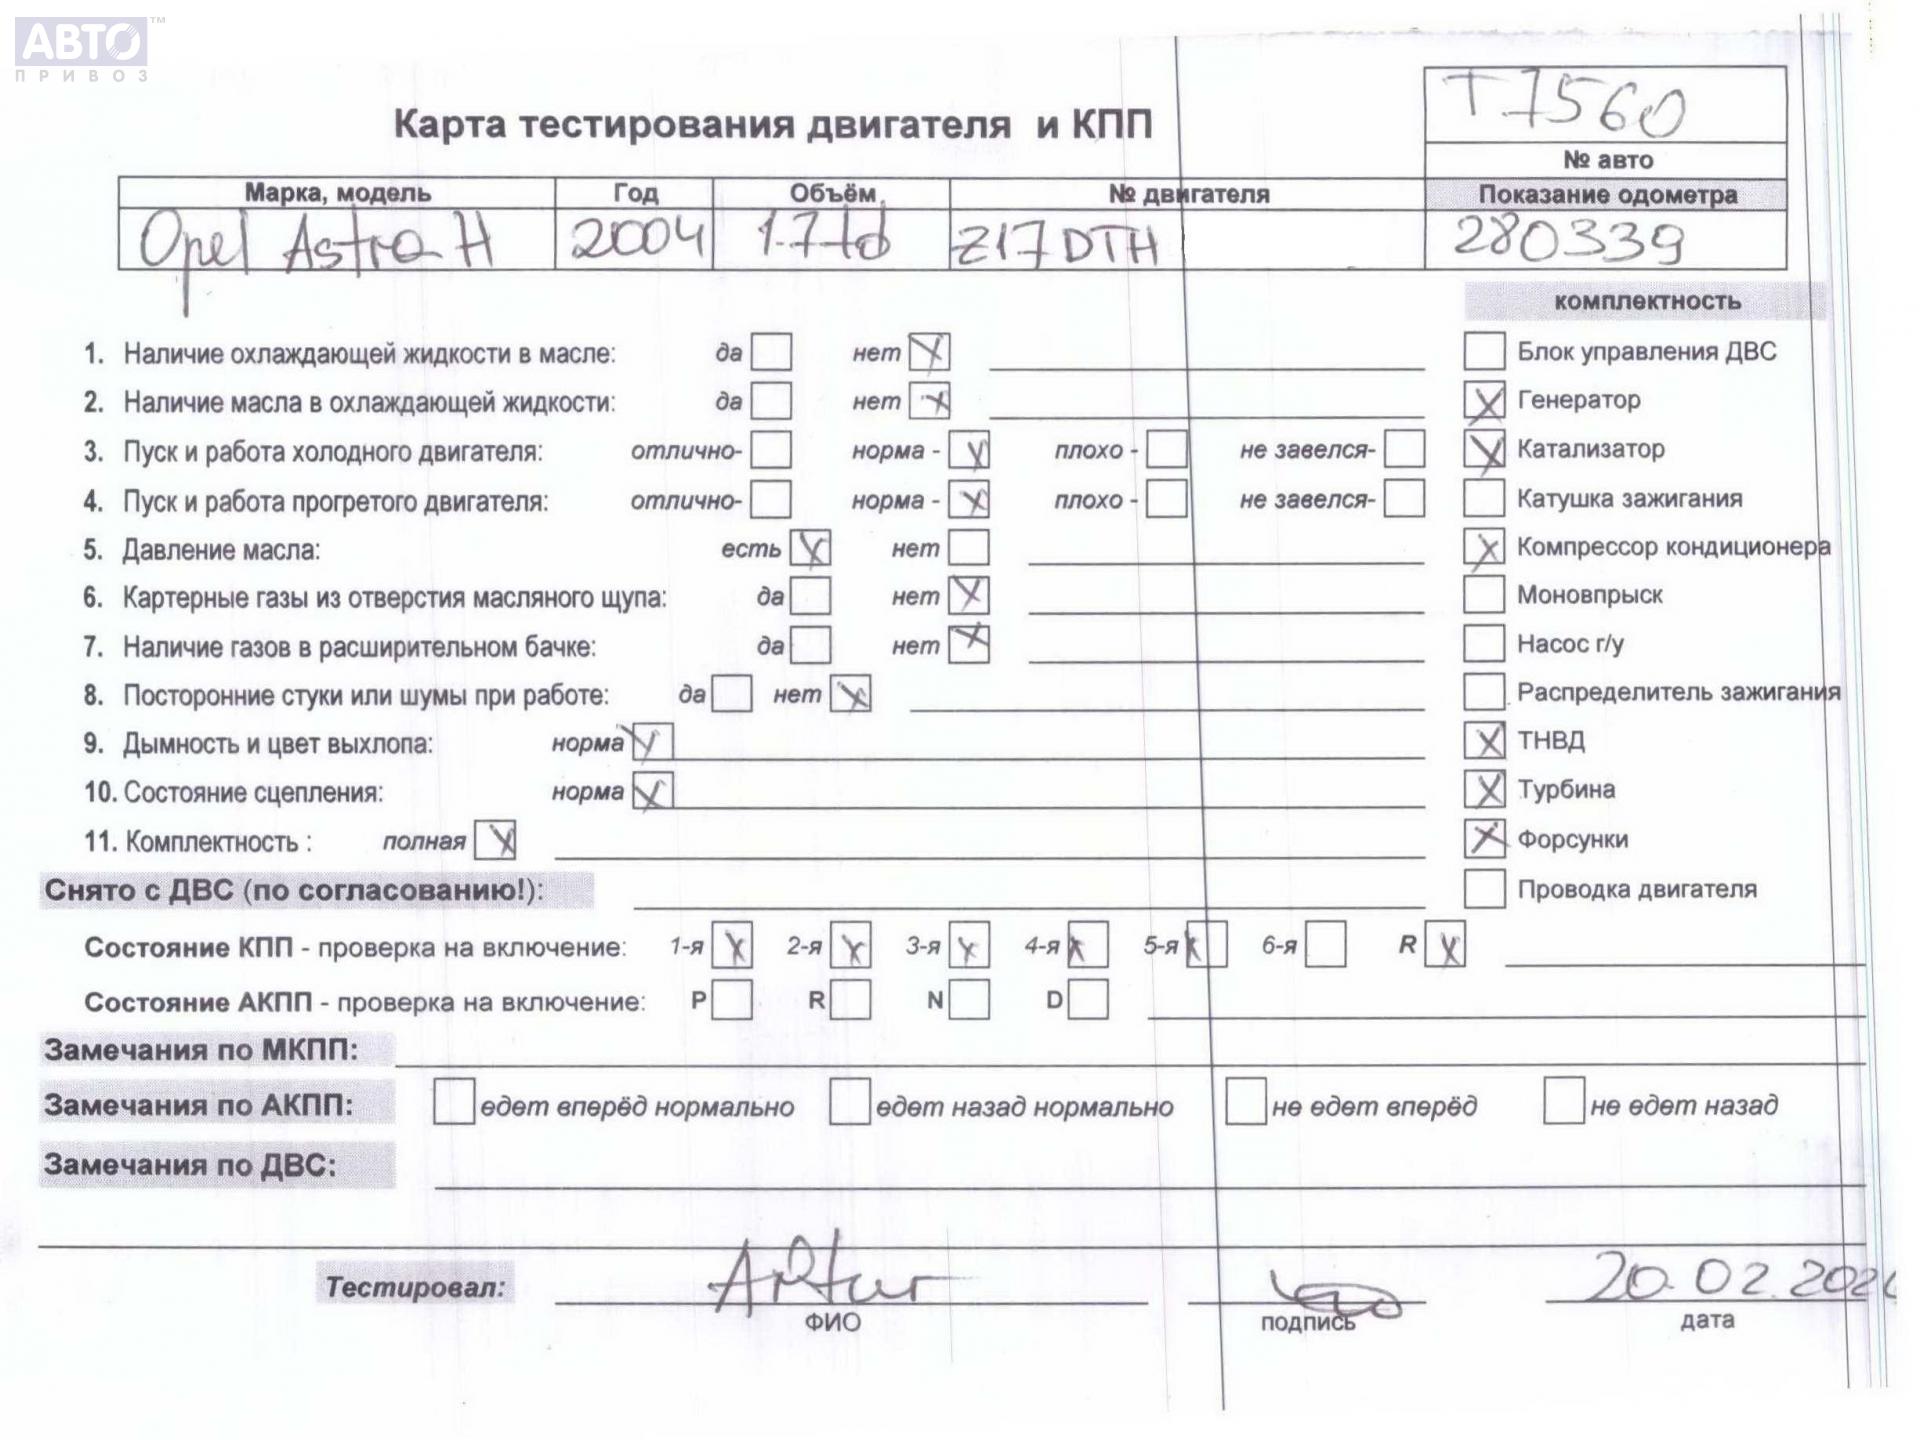 АВТО™
ПРИВОЗ
T7560
Карта тестирования двигателя и КПП
№ авто
Марка, модель Год Объём № двигателя Показание одометра
Opel Astra H 2004 1.7td Z17DTH 280339
комплектность
1. Наличие охлаждающей жидкости в масле: да нет X Блок управления ДВС
2. Наличие масла в охлаждающей жидкости: да нет X X Генератор
3. Пуск и работа холодного двигателя: отлично- норма - X плохо - не завелся- X Катализатор
4. Пуск и работа прогретого двигателя: отлично- норма - X плохо - не завелся- Катушка зажигания
5. Давление масла: есть X нет X Компрессор кондиционера
6. Картерные газы из отверстия масляного щупа: да нет X Моновпрыск
7. Наличие газов в расширительном бачке: да нет X Насос г/у
8. Посторонние стуки или шумы при работе: да нет X Распределитель зажигания
9. Дымность и цвет выхлопа: норма X X ТНВД
10. Состояние сцепления: норма X X Турбина
11. Комплектность : полная X X Форсунки
Снято с ДВС (по согласованию!): Проводка двигателя
Состояние КПП - проверка на включение: 1-я X 2-я X 3-я X 4-я X 5-я X 6-я R X
Состояние АКПП - проверка на включение: P R N D
Замечания по МКПП:
Замечания по АКПП: едет вперёд нормально едет назад нормально не едет вперёд не едет назад
Замечания по ДВС:
Тестировал: Artur 20.02.202
ФИО подпись дата